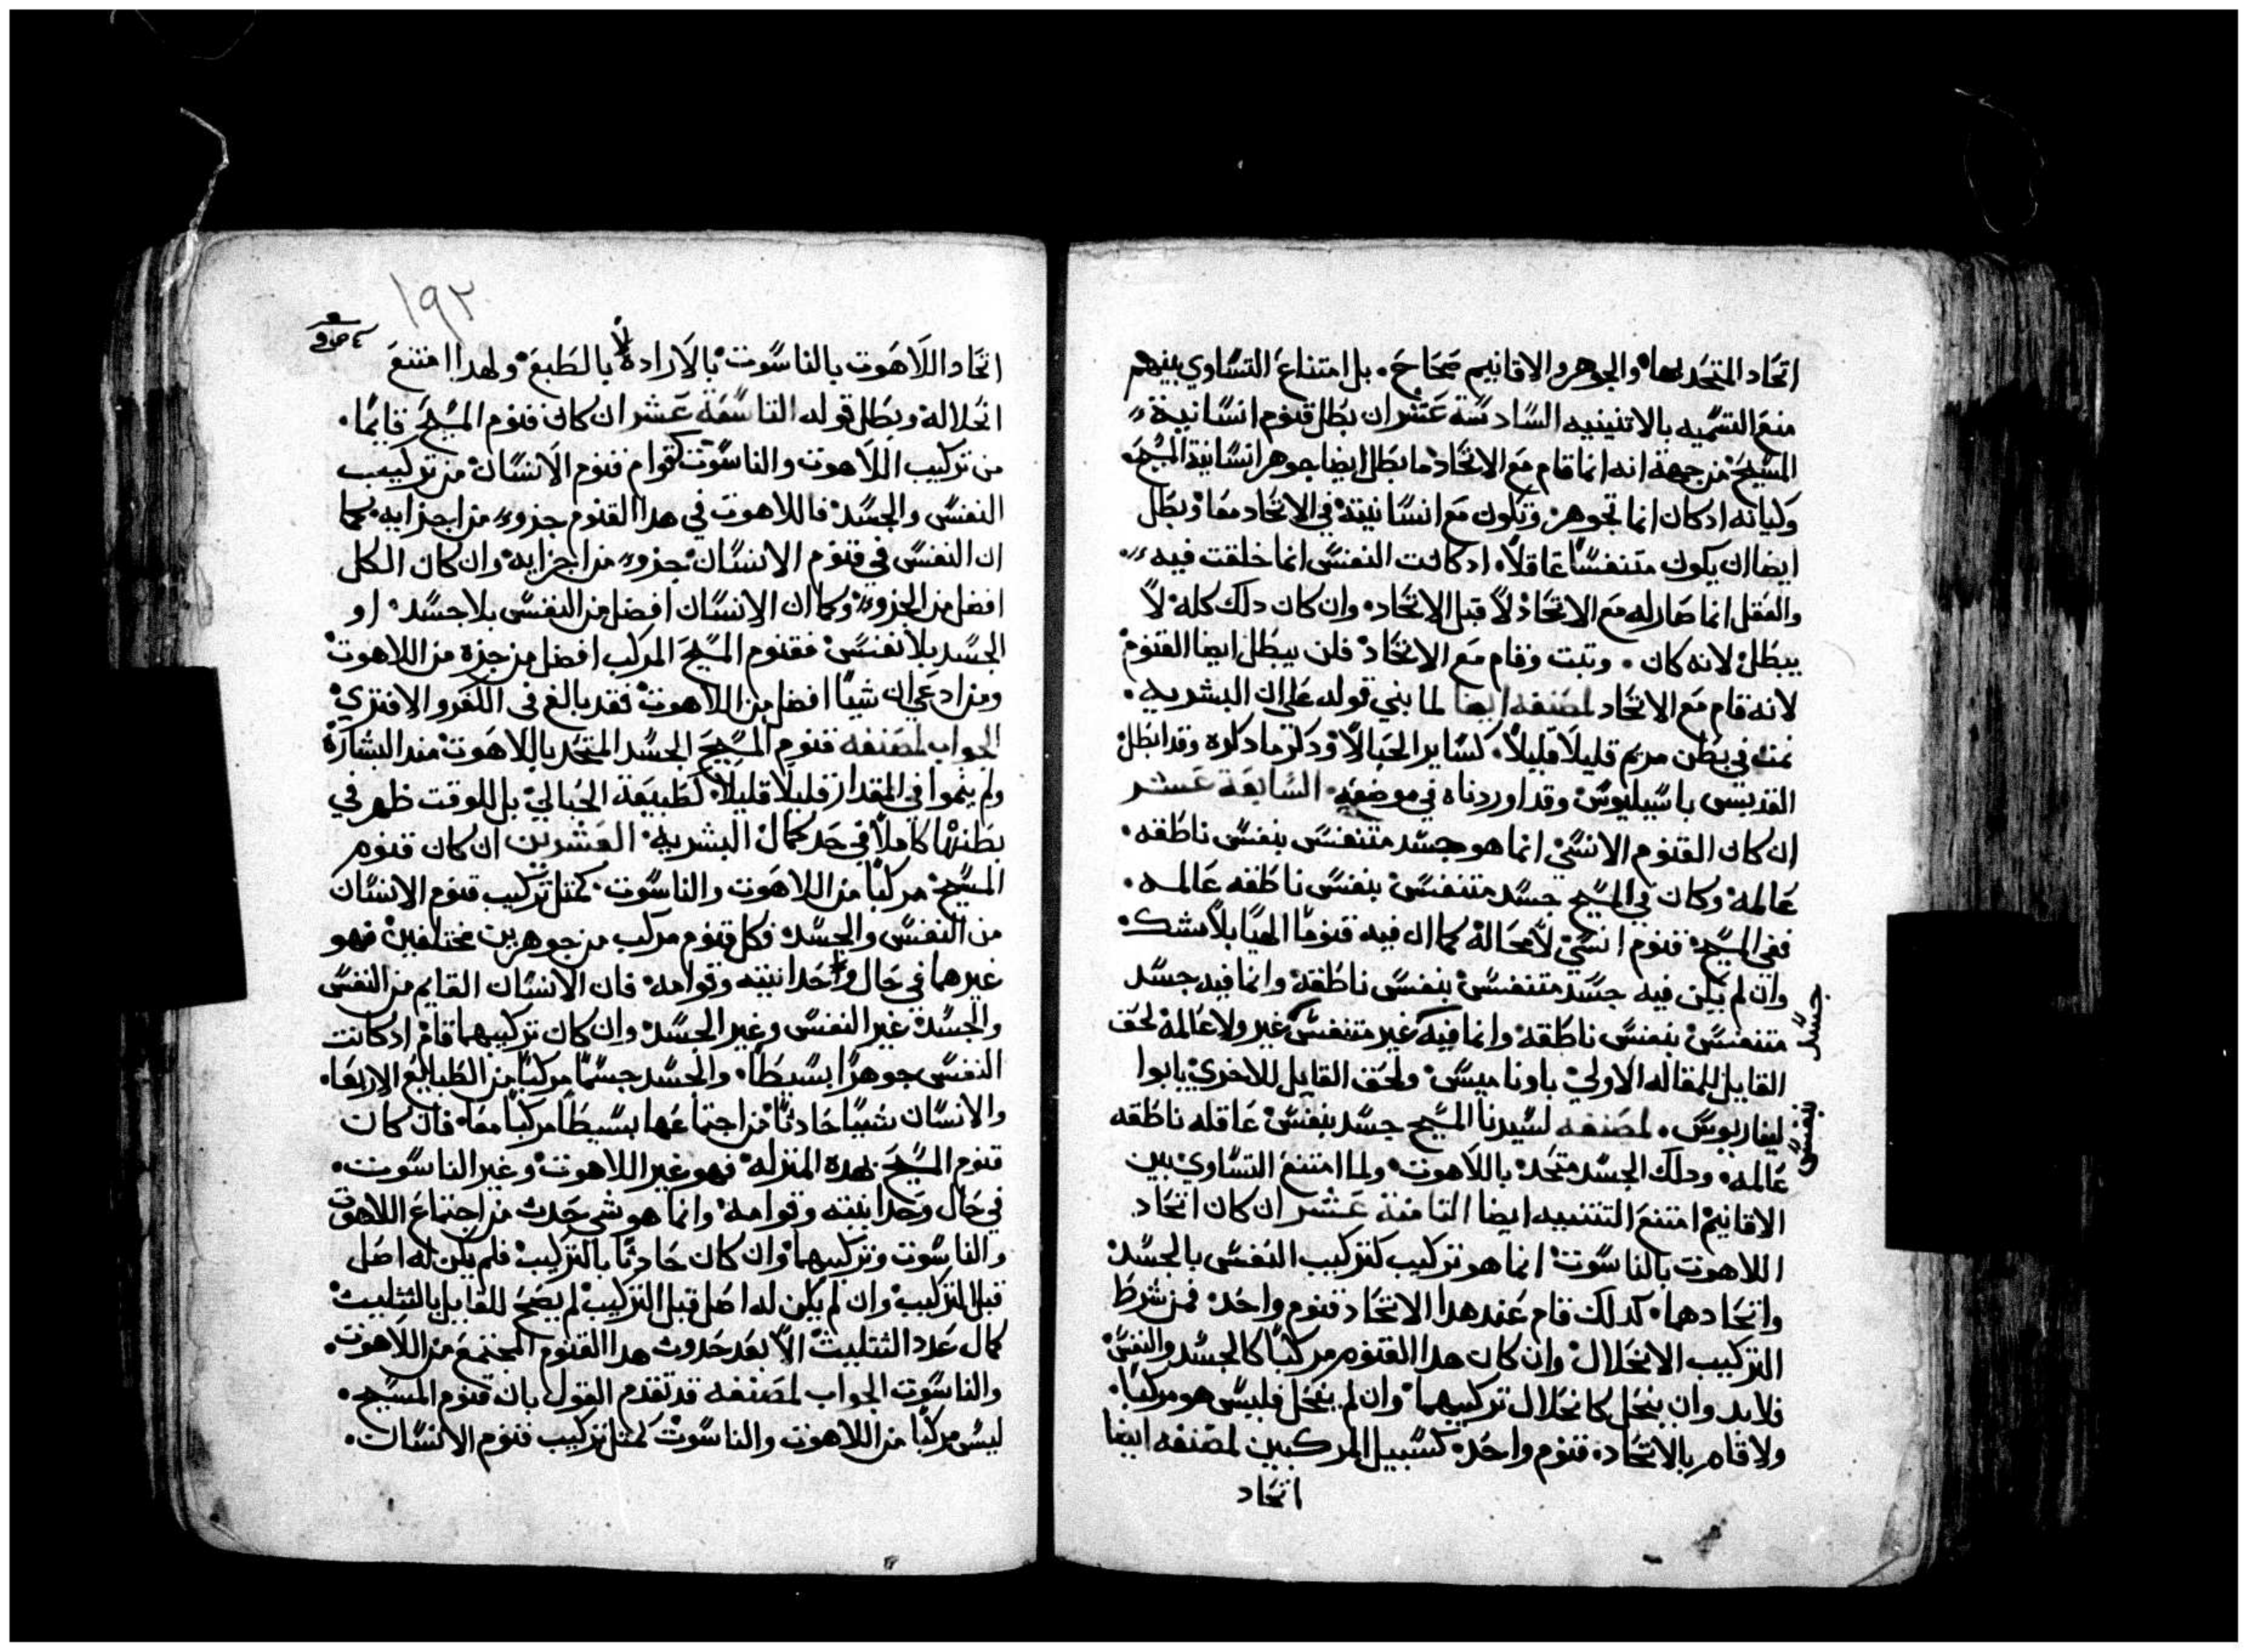 اتحاد المتحد بهما والجوهر والاقانيم صحاح. بل امتناع التساوي بينهم
منع التسميه بالاتنينيه السادسة عشر ان بطل قنوم انسانية
المسيح من جهة انه انما قام مع الاتحاد ما بطل ايضا جوهر انسانية المسيح
وكيانه اد كان انما تجوهر وتكون مع انسانيتة في الاتحاد معا وبطل
ايضا ان يكون متنفسا عاقلا. اد كانت النفس انما خلقت فيه
والعقل انما صار له مع الاتحاد لا قبل الاتحاد. وان كان دلك كله لا
يبطل لانه كان. وتبت وقام مع الاتحاد فلن يبطل ايضا القنوم
لانه قام مع الاتحاد لمصنفه ايضا لما بني قوله على ان البشريه.
نمت في بطن مريم قليلا قليلا. كساير الحبالا ودكر ما دكره وقد ابطل
القديس باسيليوس وقد اوردناه في موضعه السابعة عشر
ان كان القنوم الانسي انما هو جسد متنفس بنفس ناطقه.
عالمة وكان في المسيح جسد متنفس بنفس ناطقه عالمه.
ففي المسيح قنوم انسي لا محالة كما ان فيه قنوما الهيا بلا شك.
وان لم يكن فيه جسد متنفس بنفس ناطقة وانما فيه جسد
متنفس بنفس ناطقه وانما فيه غير متنفس غير ولا عالمة لحق
جسد
القايل للمقاله الاولي باوناميس ولحق القايل للاخري بابوا
ليناريوس. لمصنفه لسيدنا المسيح جسد بنفس عاقله ناطقه
بنفس
عالمه. ودلك الجسد متحد باللاهوت ولما امتنع التساوي بين
الاقانيم امتنع التتنييه ايضا التامنة عشر ان كان اتحاد
اللاهوت بالناسوت انما هو تركيب كتركيب النفس بالجسد
واتحادهما. كدلك قام عند هدا الاتحاد قنوم واحد فمن شرط
التركيب الانحلال وان كان هدا القنوم مركبا كالجسد والنفس
فلا بد وان ينحل كانحلال تركيبهما وان لم ينحل فليس هو مركبا.
ولا قام بالاتحاد قنوم واحد كسبيل المركبين لمصنفه ايضا
اتحاد
١٩٢
اتحاد اللاهوت بالناسوت بالارادة لا بالطبع ولهدا امتنع
انحلاله وبطل قوله التاسعة عشر ان كان قنوم المسيح قايما.
من تركيب اللاهوت والناسوت كقوام قنوم الانسان من تركيب
النفس والجسد فاللاهوت في هدا القنوم جزو من اجزايه. كما
ان النفس في قنوم الانسان جزو من اجزايه وان كان الكل
افضل من الجزو وكما ان الانسان افضل من النفس بلا جسد. او
الجسد بلا نفس فقنوم المسيح المركب افضل من جزه من اللاهوت
ومن ادعي ان شيا افضل من اللاهوت فقد بالغ في الكفر والافتري
الجواب لمصنفه قنوم المسيح الجسد المتحد باللاهوت مند البشارة
ولم ينموا في المقدار قليلا قليلا. كطبيعة الحبالي بل للوقت ظهر في
بطنها كاملا في حد كمال البشريه. العشرين ان كان قنوم
المسيح مركبا من اللاهوت والناسوت. كمتل تركيب قنوم الانسان
من النفس والجسد فكل قنوم مركب من جوهرين مختلفين فهو
غيرهما في حال وحدانيته وقوامه فان الانسان القايم من النفس
والجسد غير النفس وغير الجسد وان كان تركيبهما قام اد كانت
النفس جوهرا بسيطا. والجسد جسما مركبا من الطبايع الاربعا.
والانسان شيا حادتا من اجتماعها بسيطا مركبا معا. فان كان
قنوم المسيح بهده المنزله فهو غير اللاهوت وغير الناسوت.
في حال وحدانيته وقوامه وانما هو شي حدت من اجتماع اللاهوت
والناسوت وتركيبهما وان كان حادتا بالتركيب فلم يكن له اصل
قبل التركيب وان لم يكن له اصل قبل التركيب لم يصح للقايل بالتتليت
كمال عدد التتليت الا بعد حدوث هدا القنوم المجتمع من اللاهوت.
والناسوت الجواب لمصنفه قد تقدم القول بان قنوم المسيح.
ليس مركبا من اللاهوت والناسوت كمتل تركيب قنوم الانسان.